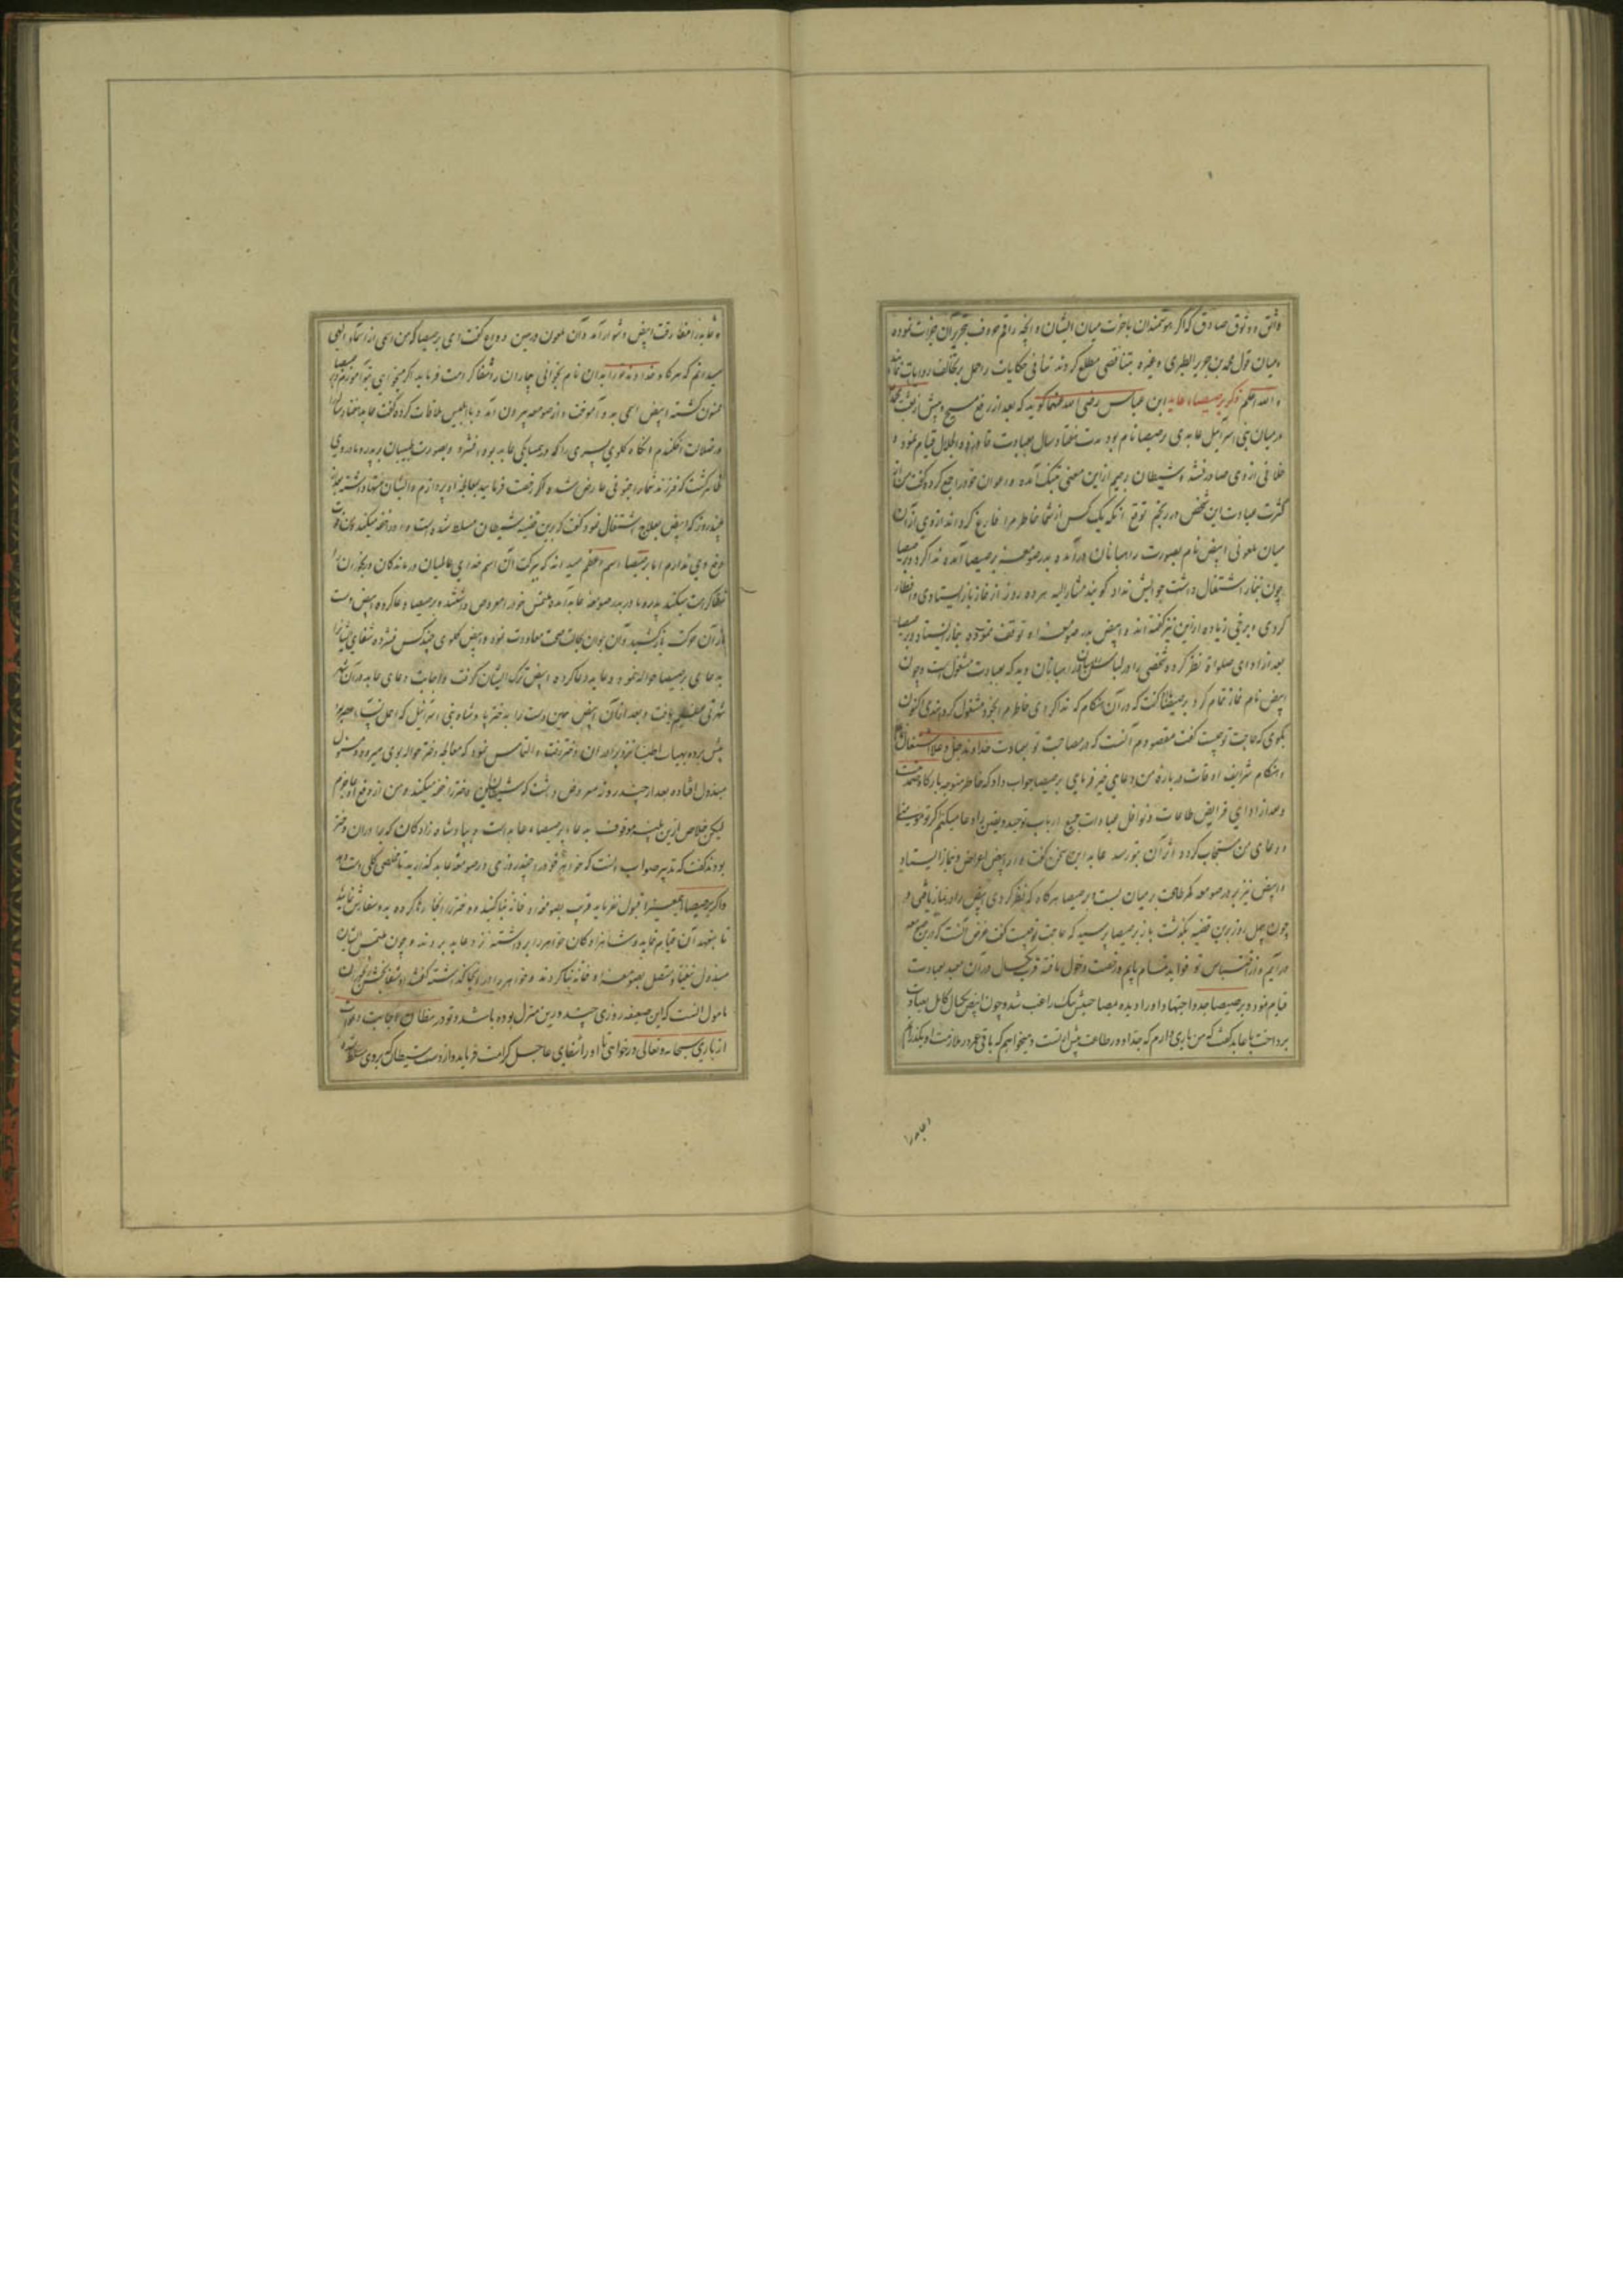 واثق و وثوق صادق که اگر هوشمندان باخرت میان ایشان و آنچه راقم حروف بتحریر آن جرات نموده
و میان قول محمد بن جریر الطبری و غیره بتناقضی مطلع گردند تنافی حکایات را حمل بر تخالف روایات نمایند
و الله اعلم ذکر برصیصاء عابد ابن عباس رضی الله عنهما گوید که بعد از رفع مسیح و پیش از بعثت
در میان بنی اسرائیل عابدی برصیصا نام بود مدت هفتاد سال بعبادت قیام نمود و
خلافی از وی صادر نشد و شیطان رجیم ازین معنی بتنگ آمده و اعوان خود را جمع کرده گفت من از
کثرت عبادت این شخص در رنجم توقع آنکه یک کس از شما خاطر مرا فارغ گرداند از وی از آن
میان ملعونی ابیض نام بصورت راهبانان برآمده بدر صومعه برصیصا آمده ندا کرد و برصیصا
چون بنماز اشتغال داشت جوابش نداد گویند مشار الیه هر ده روز از نماز باز ایستادی و افطار
کردی و برخی زیاده ازین نیز گفته‌اند و ابیض بدر صومعه او توقف نموده بنماز ایستاد و برصیصا
بعد از ادای صلواة نظر کرده شخصی را در لباس راهبانان دید که بعبادت مشغول است و چون
ابیض نام نماز تمام کرد برصیصا گفت که در آن هنگام که ندا کردی خاطرم بخود مشغول کرده بودی اکنون
بگوی که حاجت تو چیست گفت مقصودم آنست که در مصاحبت تو بعبادت خداوند جل و علا اشتغال نمایم
و هنگام شرایف اوقات در باره من دعای خیر فرمایی برصیصا جواب داد که خاطر متوجه بارگاه صمدیت
و بعد از ادای فرایض طاعات و نوافل عبادات جمیع ارباب توحید و یقین را دعا میکنم اگر تو مومنی
و دعای من مستجاب گردد اثر آن بتو رسد عابد این سخن گفت و از ابیض اعراض و بنماز ایستاد
و ابیض نیز بر در صومعه کمر طاعت بر میان بست برصیصا هرگاه که نظر کردی ابیض را در نماز یافتی و
چون چهل روز برین قضیه بگذشت باز برصیصا پرسید که حاجت تو چیست گفت غرض آنست که درین صومعه
درآیم و از اقتباس تو فواید تمام یابم و رخصت دخول یافته قرب یکسال در آن معبد بعبادت
قیام نمود و برصیصا جد و اجتهاد او را دیده بمصاحبتش نیک راغب شد و چون ابیض یکسال کامل بعبادت
پرداخت با عابد گفت که من یاری دارم که جد او در طاعت بیش از تست و میخواهم که باقی عمر در ملازمت او بگذرانم
و عابد را
و عابد را مفارقت ابیض دشوار آمد و آن ملعون در حین وداع گفت ای برصیصا که من اسمی از اسماء الهی
میدانم که هرگاه خداوند را بدان نام بخوانی بیماران را شفا کرامت فرماید اگر میخواهی بتو آموزم برصیصا
ممنون گشته ابیض اسمی بدو آموخت و از صومعه بیرون آمده با ابلیس ملاقات کرده گفت عابد هفتاد ساله را
در ضلالت افکندم و آنگاه گلوی پسری را که در همسایگی عابد بود بفشرد و بصورت طبیبان بر پدر و مادر وی
ظاهر گشت که فرزند شما را جنونی عارض شده اگر رخصت فرمایید بمعالجه او پردازم و ایشان منتها داشته
چند روز که ابیض بعلاج اشتغال نمود گفت که برین قضیه شیطان مسلط شده است و او را خفه میکند و من قوت
دفع وی ندارم اما برصیصا اسم اعظم میداند که ببرکت آن اسم خدای عالمیان درماندگان و رنجوران را
شفا کرامت میکند پدر و مادر بدر صومعه عابد آمده ملتمس خود را معروض داشتند و برصیصا دعا کرده ابیض دست
از آن حرکت باز کشید و آن جوان بحالت صحت معاودت نمود و ابیض گلوی چند کس فشرده شفای ایشان را
بدعای برصیصا حواله نمود و عابد دعا کرده ابیض ترک ایشان گرفت و اجابت دعای عابد در آن شهر
شهرتی عظیم یافت و بعد از آن ابیض همین دست را بدختر پادشاه بنی اسرائیل که اجمل
پیش برده بهیات اطبا نزد برادران دختر رفت و التماس نمود که معالجه دختر حواله بوی میرود
مبذول افتاده بعد از چند روز معروض داشت که شیطان لعین دختر را خفه میکند و من از دفع او عاجزم
لیکن خلاص ازین بلیه موقوف بدعاء برصیصاء عابد است و پادشاه زادگان که برادران دختر
بودند گفت که تدبیر صواب آنست که خواهر خود را چند روزی در صومعه عابد گذارید تا خلاصی کلی دست دهد
و اگر برصیصا این معنی را قبول نفرماید قریب بصومعه او خانه بنا کنید و دختر را آنجا رها کرده بدو سفارش نمایید
تا بتعهد آن قیام نماید و شاهزادگان خواهر را برداشته نزد عابد بردند و چون ملتمس ایشان
مبذول نیفتاد متصل بصومعه او خانه بنا کردند و خواهر را در آنجا گذاشته گفتند ای شفابخش رنجوران
مامول آنست که این ضعیفه روزی چند درین منزل بوده باشد و تو در مظان اجابت دعوات
از باری سبحانه و تعالی درخواهی تا او را شفای عاجل کرامت فرماید و از دست شیطان که بروی مسلط شده